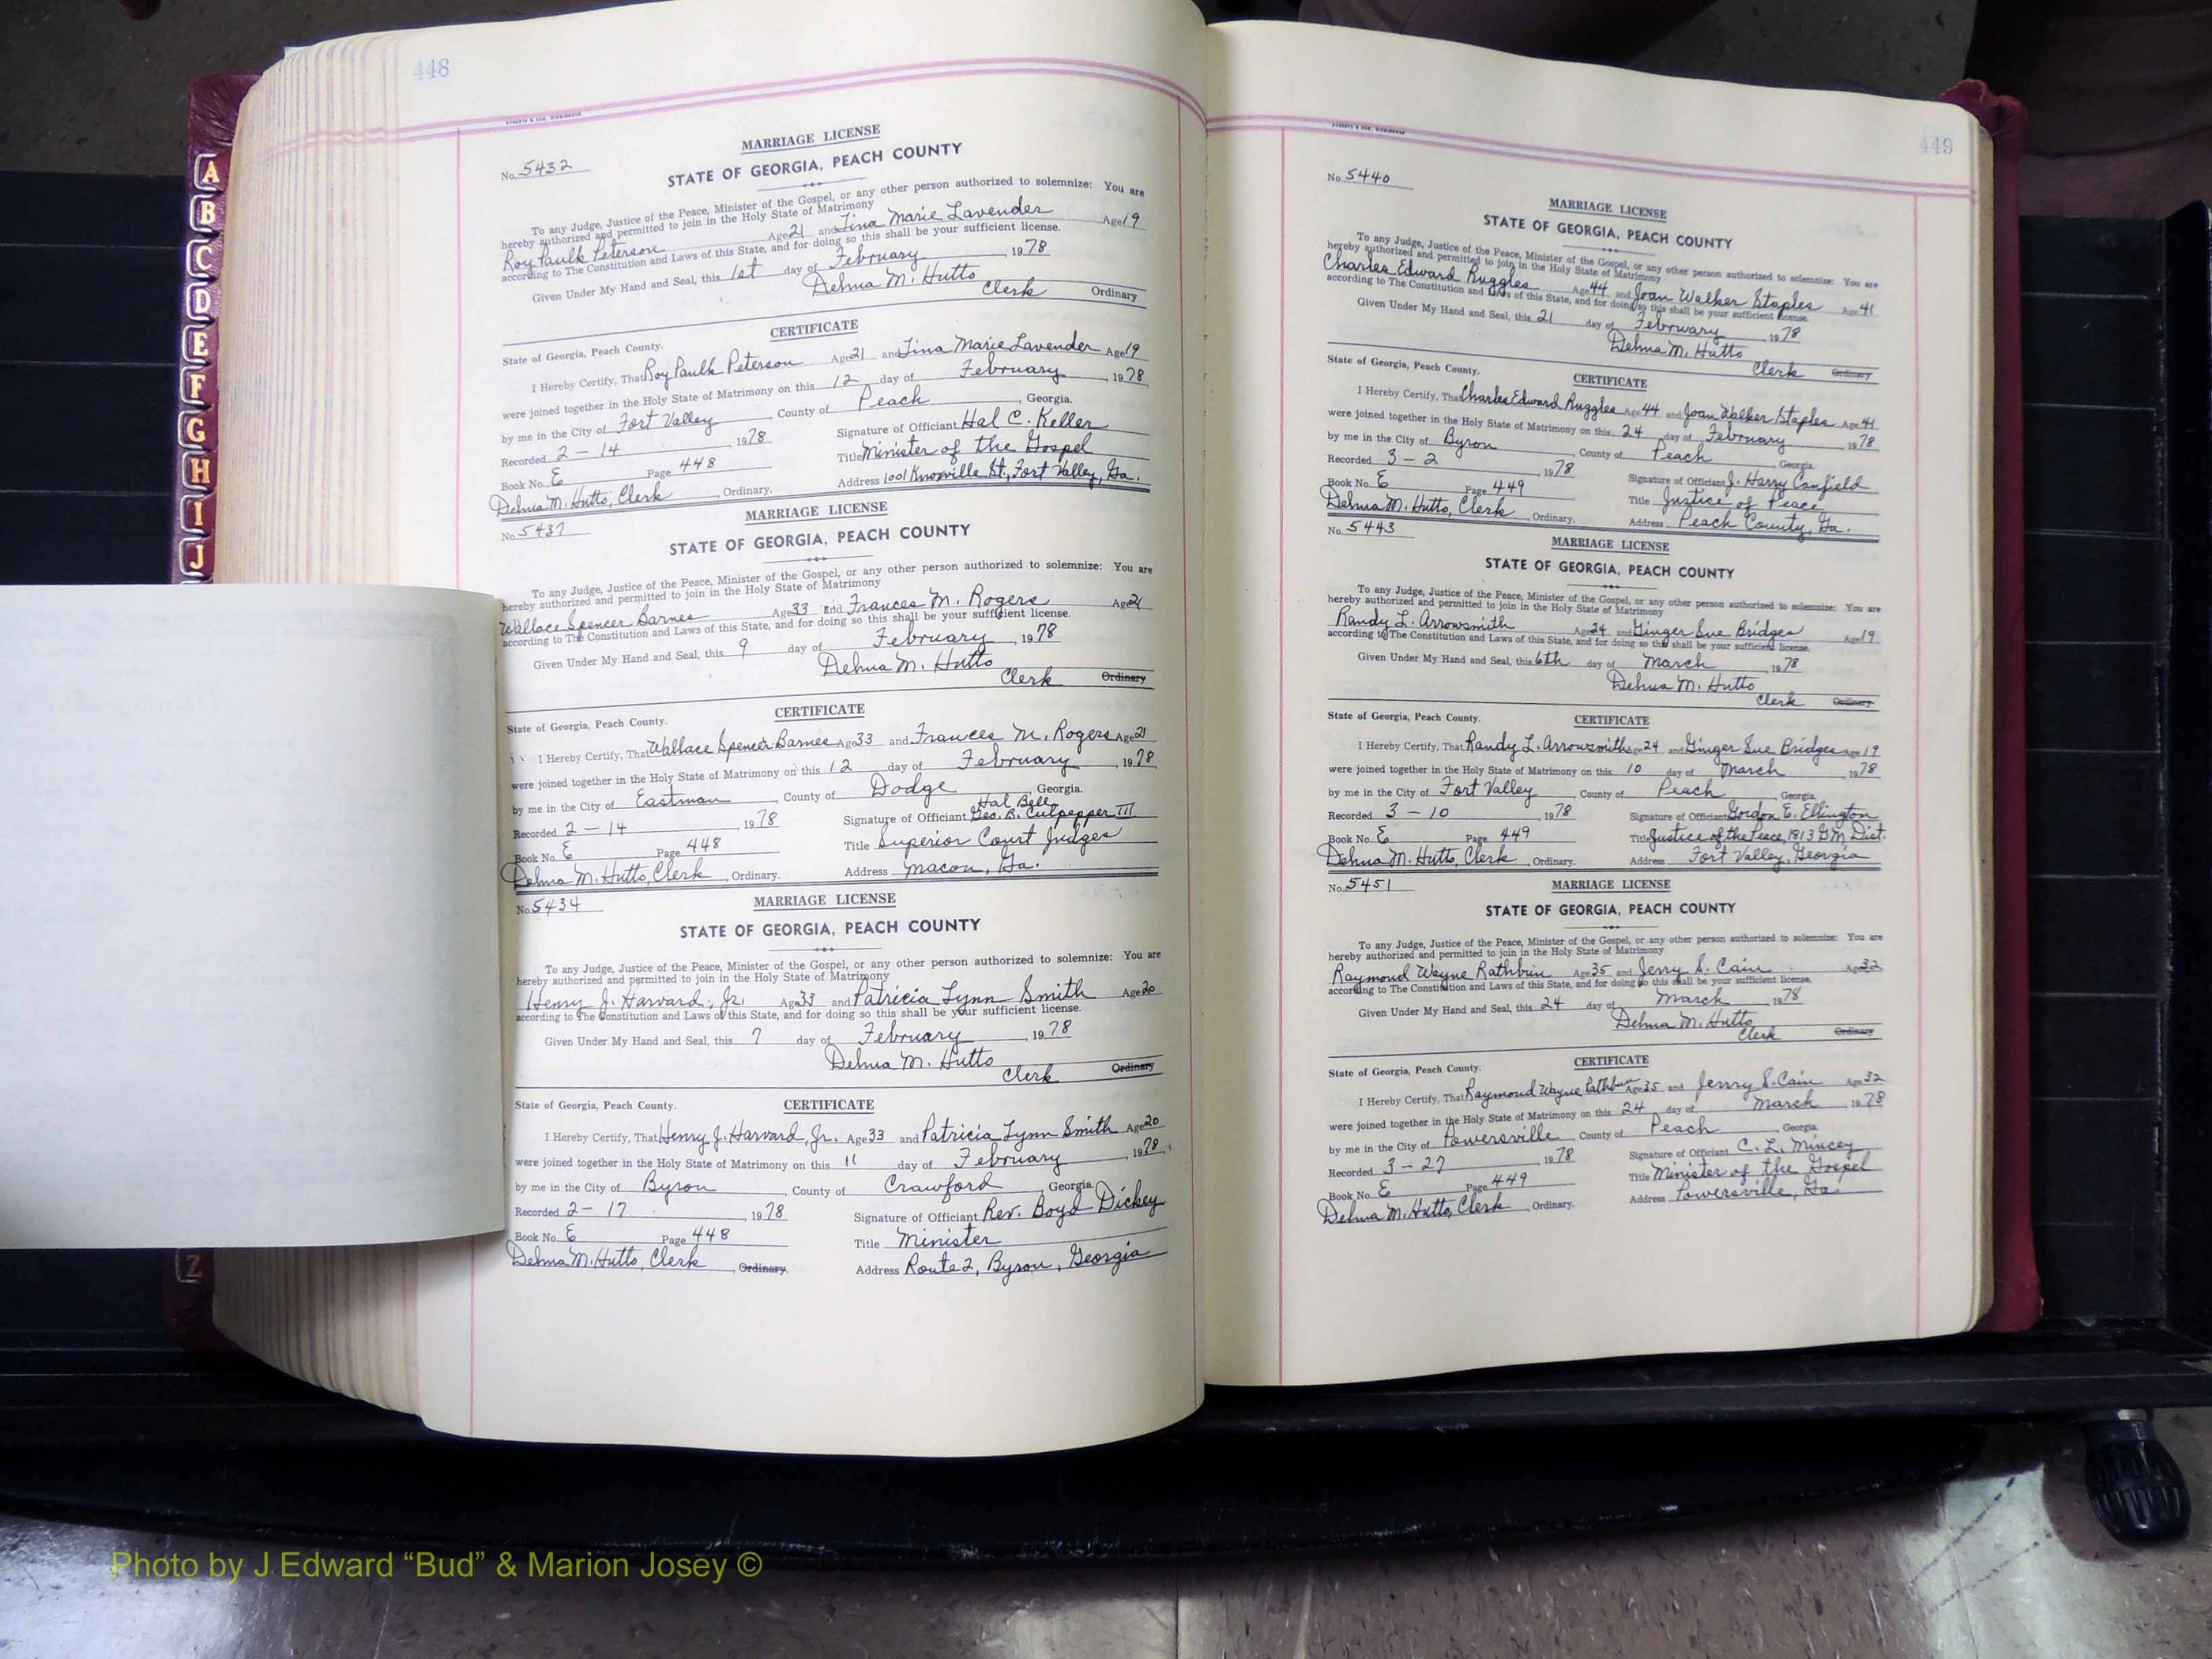 448
ROBERTS & SON, BIRMINGHAM
MARRIAGE LICENSE
No. 5432
STATE OF GEORGIA, PEACH COUNTY
To any Judge, Justice of the Peace, Minister of the Gospel, or any other person authorized to solemnize: You are
hereby authorized and permitted to join in the Holy State of Matrimony
Roy Paulk Peterson Age 21 and Tina Marie Lavender Age 19
according to The Constitution and Laws of this State, and for doing so this shall be your sufficient license.
Given Under My Hand and Seal, this 1st day of February, 1978
Delma M. Hutto
Clerk Ordinary
CERTIFICATE
State of Georgia, Peach County.
I Hereby Certify, That Roy Paulk Peterson Age 21 and Tina Marie Lavender Age 19
were joined together in the Holy State of Matrimony on this 12 day of February, 1978
by me in the City of Fort Valley, County of Peach, Georgia.
Recorded 2-14 1978 Signature of Officiant Hal C. Keller
Book No. E Page 448 Title Minister of the Gospel
Delma M. Hutto, Clerk, Ordinary. Address 1001 Knoxville St, Fort Valley, Ga.
MARRIAGE LICENSE
No. 5437
STATE OF GEORGIA, PEACH COUNTY
To any Judge, Justice of the Peace, Minister of the Gospel, or any other person authorized to solemnize: You are
hereby authorized and permitted to join in the Holy State of Matrimony
Wallace Spencer Barnes Age 33 and Frances M. Rogers Age 21
according to The Constitution and Laws of this State, and for doing so this shall be your sufficient license.
Given Under My Hand and Seal, this 9 day of February, 1978
Delma M. Hutto
Clerk Ordinary
CERTIFICATE
State of Georgia, Peach County.
I Hereby Certify, That Wallace Spencer Barnes Age 33 and Frances M. Rogers Age 21
were joined together in the Holy State of Matrimony on this 12 day of February, 1978
by me in the City of Eastman, County of Dodge, Georgia.
Hal Bell
Recorded 2-14, 1978 Signature of Officiant Geo. B. Culpepper III
Book No. E Page 448 Title Superior Court Judges
Delma M. Hutto, Clerk, Ordinary. Address Macon, Ga.
No. 5434
MARRIAGE LICENSE
STATE OF GEORGIA, PEACH COUNTY
To any Judge, Justice of the Peace, Minister of the Gospel, or any other person authorized to solemnize: You are
hereby authorized and permitted to join in the Holy State of Matrimony
Henry J. Harvard, Jr. Age 33 and Patricia Lynn Smith Age 20
according to The Constitution and Laws of this State, and for doing so this shall be your sufficient license.
Given Under My Hand and Seal, this 7 day of February, 1978
Delma M. Hutto
Clerk Ordinary
State of Georgia, Peach County. CERTIFICATE
I Hereby Certify, That Henry J. Harvard, Jr. Age 33 and Patricia Lynn Smith Age 20
were joined together in the Holy State of Matrimony on this 11 day of February, 1978.
by me in the City of Byron, County of Crawford, Georgia.
Recorded 2-17, 1978 Signature of Officiant Rev. Boyd Dickey
Book No. E Page 448 Title Minister
Delma M. Hutto, Clerk, Ordinary. Address Route 2, Byron, Georgia
449
ROBERTS & SON, BIRMINGHAM
No. 5440
MARRIAGE LICENSE
STATE OF GEORGIA, PEACH COUNTY
To any Judge, Justice of the Peace, Minister of the Gospel, or any other person authorized to solemnize: You are
hereby authorized and permitted to join in the Holy State of Matrimony
Charles Edward Ruggles Age 44 and Joan Walker Staples Age 41
according to The Constitution and Laws of this State, and for doing so this shall be your sufficient license.
Given Under My Hand and Seal, this 21 day of February, 1978
Delma M. Hutto
Clerk Ordinary
State of Georgia, Peach County. CERTIFICATE
I Hereby Certify, That Charles Edward Ruggles Age 44 and Joan Walker Staples Age 41
were joined together in the Holy State of Matrimony on this 24 day of February, 1978
by me in the City of Byron, County of Peach, Georgia
Recorded 3-2 1978 Signature of Officiant J. Harry Canfield
Book No. E Page 449 Title Justice of Peace
Delma M. Hutto, Clerk, Ordinary. Address Peach County, Ga.
No. 5443
MARRIAGE LICENSE
STATE OF GEORGIA, PEACH COUNTY
To any Judge, Justice of the Peace, Minister of the Gospel, or any other person authorized to solemnize: You are
hereby authorized and permitted to join in the Holy State of Matrimony
Randy L. Arrowsmith Age 24 and Ginger Sue Bridges Age 19
according to The Constitution and Laws of this State, and for doing so this shall be your sufficient license.
Given Under My Hand and Seal, this 6th day of March, 1978
Delma M. Hutto
Clerk Ordinary
State of Georgia, Peach County. CERTIFICATE
I Hereby Certify, That Randy L. Arrowsmith Age 24 and Ginger Sue Bridges Age 19
were joined together in the Holy State of Matrimony on this 10 day of March, 1978
by me in the City of Fort Valley, County of Peach, Georgia
Recorded 3-10 1978 Signature of Officiant Gordon E. Ellington
Book No. E Page 449 Title Justice of the Peace, 1813 G.M. Dist.
Delma M. Hutto, Clerk, Ordinary. Address Fort Valley, Georgia
No. 5451
MARRIAGE LICENSE
STATE OF GEORGIA, PEACH COUNTY
To any Judge, Justice of the Peace, Minister of the Gospel, or any other person authorized to solemnize: You are
hereby authorized and permitted to join in the Holy State of Matrimony
Raymond Wayne Rathbun Age 35 and Jerry S. Cain Age 32
according to The Constitution and Laws of this State, and for doing so this shall be your sufficient license.
Given Under My Hand and Seal, this 24 day of March, 1978
Delma M. Hutto
Clerk Ordinary
CERTIFICATE
State of Georgia, Peach County.
I Hereby Certify, That Raymond Wayne Rathbun Age 35 and Jerry S. Cain Age 32
were joined together in the Holy State of Matrimony on this 24 day of March, 1978
by me in the City of Powersville, County of Peach, Georgia
Recorded 3-27 1978 Signature of Officiant C. L. Mincey
Book No. E Page 449 Title Minister of the Gospel
Delma M. Hutto, Clerk, Ordinary. Address Powersville, Ga.
A
B
C
D
E
F
G
H
I
J
Z
Photo by J Edward “Bud” & Marion Josey ©